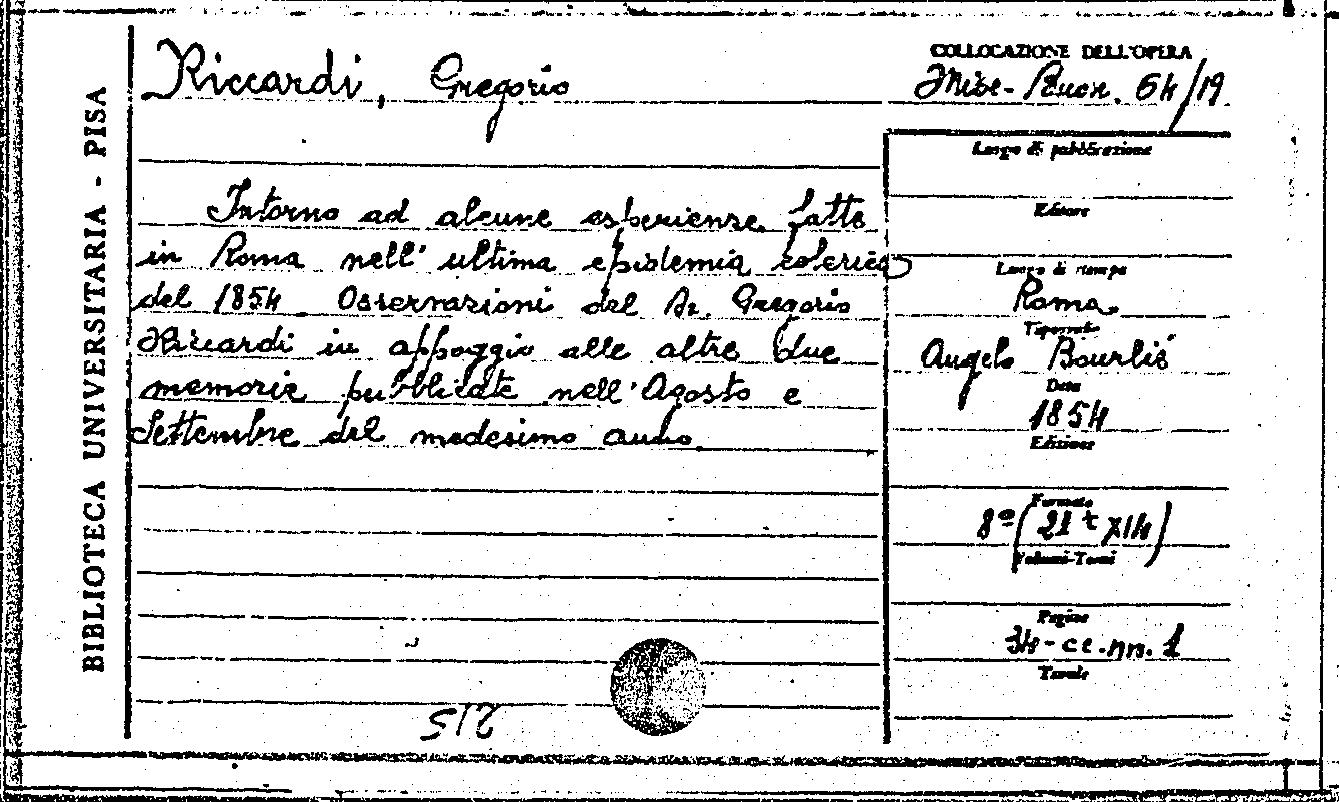 BIBLIOTECA UNIVERSITARIA - PISA
Riccardi, Gregorio
Intorno ad alcune esperienze fatte
in Roma nell' ultima epidemia colerica
del 1854. Osservazioni del Dr. Gregorio
Riccardi in appoggio alle altre due
memorie pubblicate nell' Agosto e
Settembre del medesimo anno
COLLOCAZIONE DELL'OPERA
Misc. Buon. 64/19
Luogo di pubblicazione
Editore
Luogo di stampa
Roma
Tipografo
Angelo Bourliè
Data
1854
Edizione
Formato
8º (21 x 14)
Volumi-Tomi
Pagine
34 - cc.nn. 1
Tavole